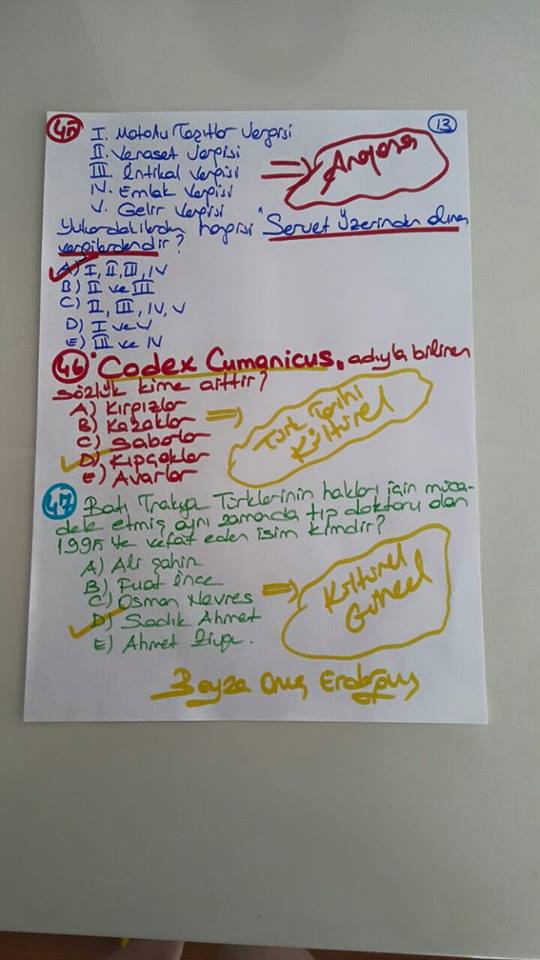 45 13
I. Motorlu Taşıtlar Vergisi
II. Veraset Vergisi
III. İntikal Vergisi
IV. Emlak Vergisi
V. Gelir Vergisi
=> Anayasa
Yukarıdakilerden hangisi "Servet Üzerinden alınan
vergilerdendir?
A) I, II, III, IV
B) II ve III
C) II, III, IV, V
D) I ve V
E) III ve IV
46 "Codex Cumanicus" adıyla bilinen
sözlük kime aittir?
A) Kırgızlar
B) Kazaklar
C) Sabarlar
D) Kıpçaklar
E) Avarlar
=> Türk Tarihi
Kültürel
47 Batı Trakya Türklerinin hakları için müca-
dele etmiş aynı zamanda tıp doktoru olan
1995 te vefat eden isim kimdir?
A) Ali Şahin
B) Fuat İnce
C) Osman Nevres
D) Sadık Ahmet
E) Ahmet Ziya.
=> Kültürel
Güncel
Beyza